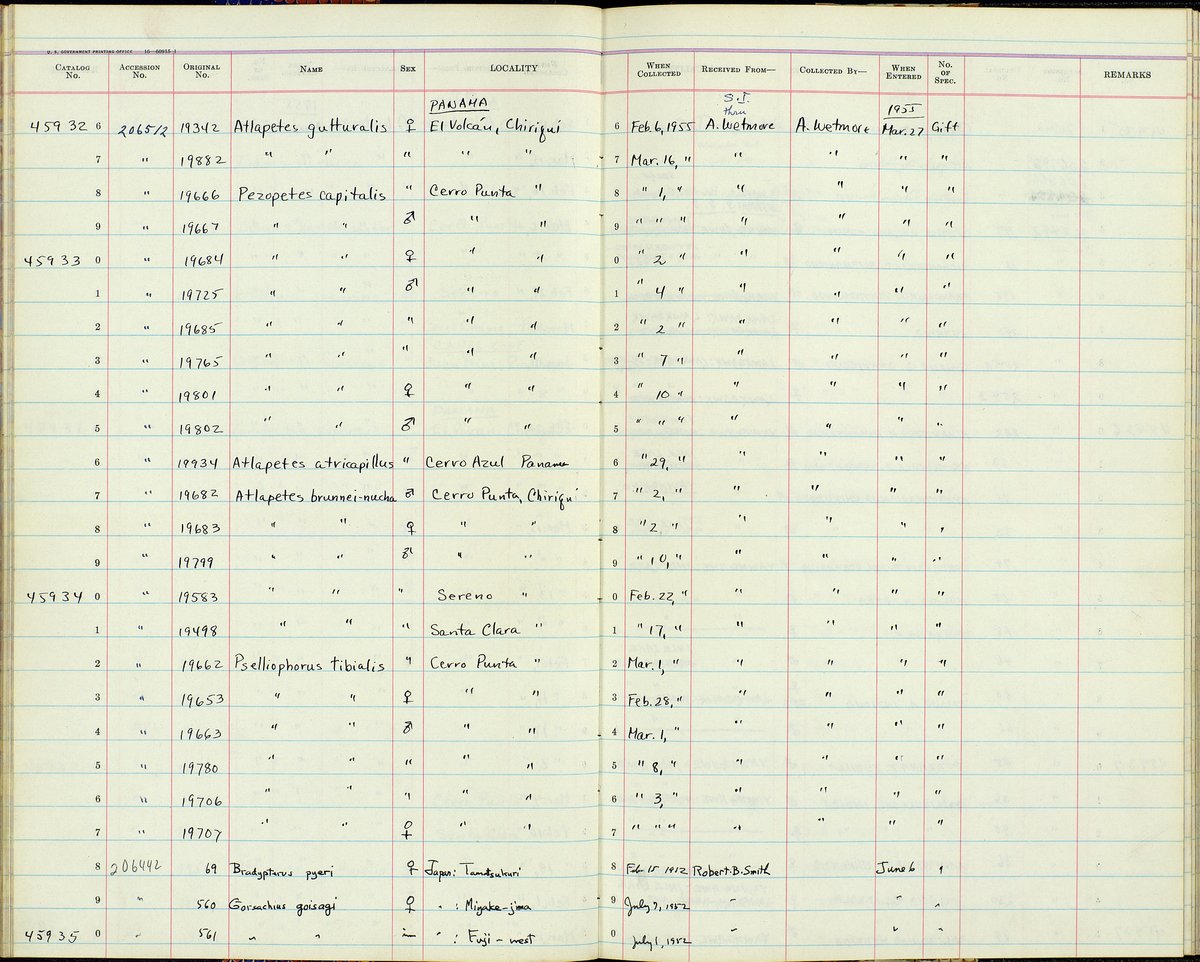 U. S. GOVERNMENT PRINTING OFFICE 16—60935-1
CATALOG No. ACCESSION No. ORIGINAL No. NAME SEX LOCALITY WHEN COLLECTED RECEIVED FROM— COLLECTED BY— WHEN ENTERED No. OF SPEC. REMARKS
PANAMA S.I. thru 1955
45932 6 206512 19342 Atlapetes gutturalis ♀ El Volcán, Chiriquí 6 Feb. 6, 1955 A. Wetmore A. Wetmore Mar. 27 Gift
7 " 19882 " " " " " 7 Mar. 16, " " " " "
8 " 19666 Pezopetes capitalis " Cerro Punta " 8 " 1, " " " " "
9 " 19667 " " ♂ " " 9 " " " " " " "
45933 0 " 19684 " " ♀ " " 0 " 2 " " " " "
1 " 19725 " " ♂ " " 1 " 4 " " " " "
2 " 19685 " " " " " 2 " 2 " " " " "
3 " 19765 " " " " " 3 " 7 " " " " "
4 " 19801 " " ♀ " " 4 " 10 " " " " "
5 " 19802 " " ♂ " " 5 " " " " " " "
6 " 19934 Atlapetes atricapillus " Cerro Azul Panama 6 " 29, " " " " "
7 " 19682 Atlapetes brunnei-nucha ♂ Cerro Punta, Chiriquí 7 " 2, " " " " "
8 " 19683 " " ♀ " " 8 " 2, " " " " "
9 " 19799 " " ♂ " " 9 " 10, " " " " "
45934 0 " 19583 " " " Sereno " 0 Feb. 22, " " " " "
1 " 19498 " " " Santa Clara " 1 " 17, " " " " "
2 " 19662 Pselliophorus tibialis " Cerro Punta " 2 Mar. 1, " " " " "
3 " 19653 " " ♀ " " 3 Feb. 28, " " " " "
4 " 19663 " " ♂ " " 4 Mar. 1, " " " " "
5 " 19780 " " " " " 5 " 8, " " " " "
6 " 19706 " " " " " 6 " 3, " " " " "
7 " 19707 " " ♀ " " 7 " " " " " " "
8 206442 69 Bradypterus pyeri ♀ Japan: Tamatsukuri 8 Feb 15 1952 Robert B. Smith June 6 "
9 " 560 Gorsachius goisagi ♀ " : Miyake-jima 9 July 7, 1952 " " "
45935 0 " 561 " " — " : Fuji - west 0 July 1, 1952 " " "